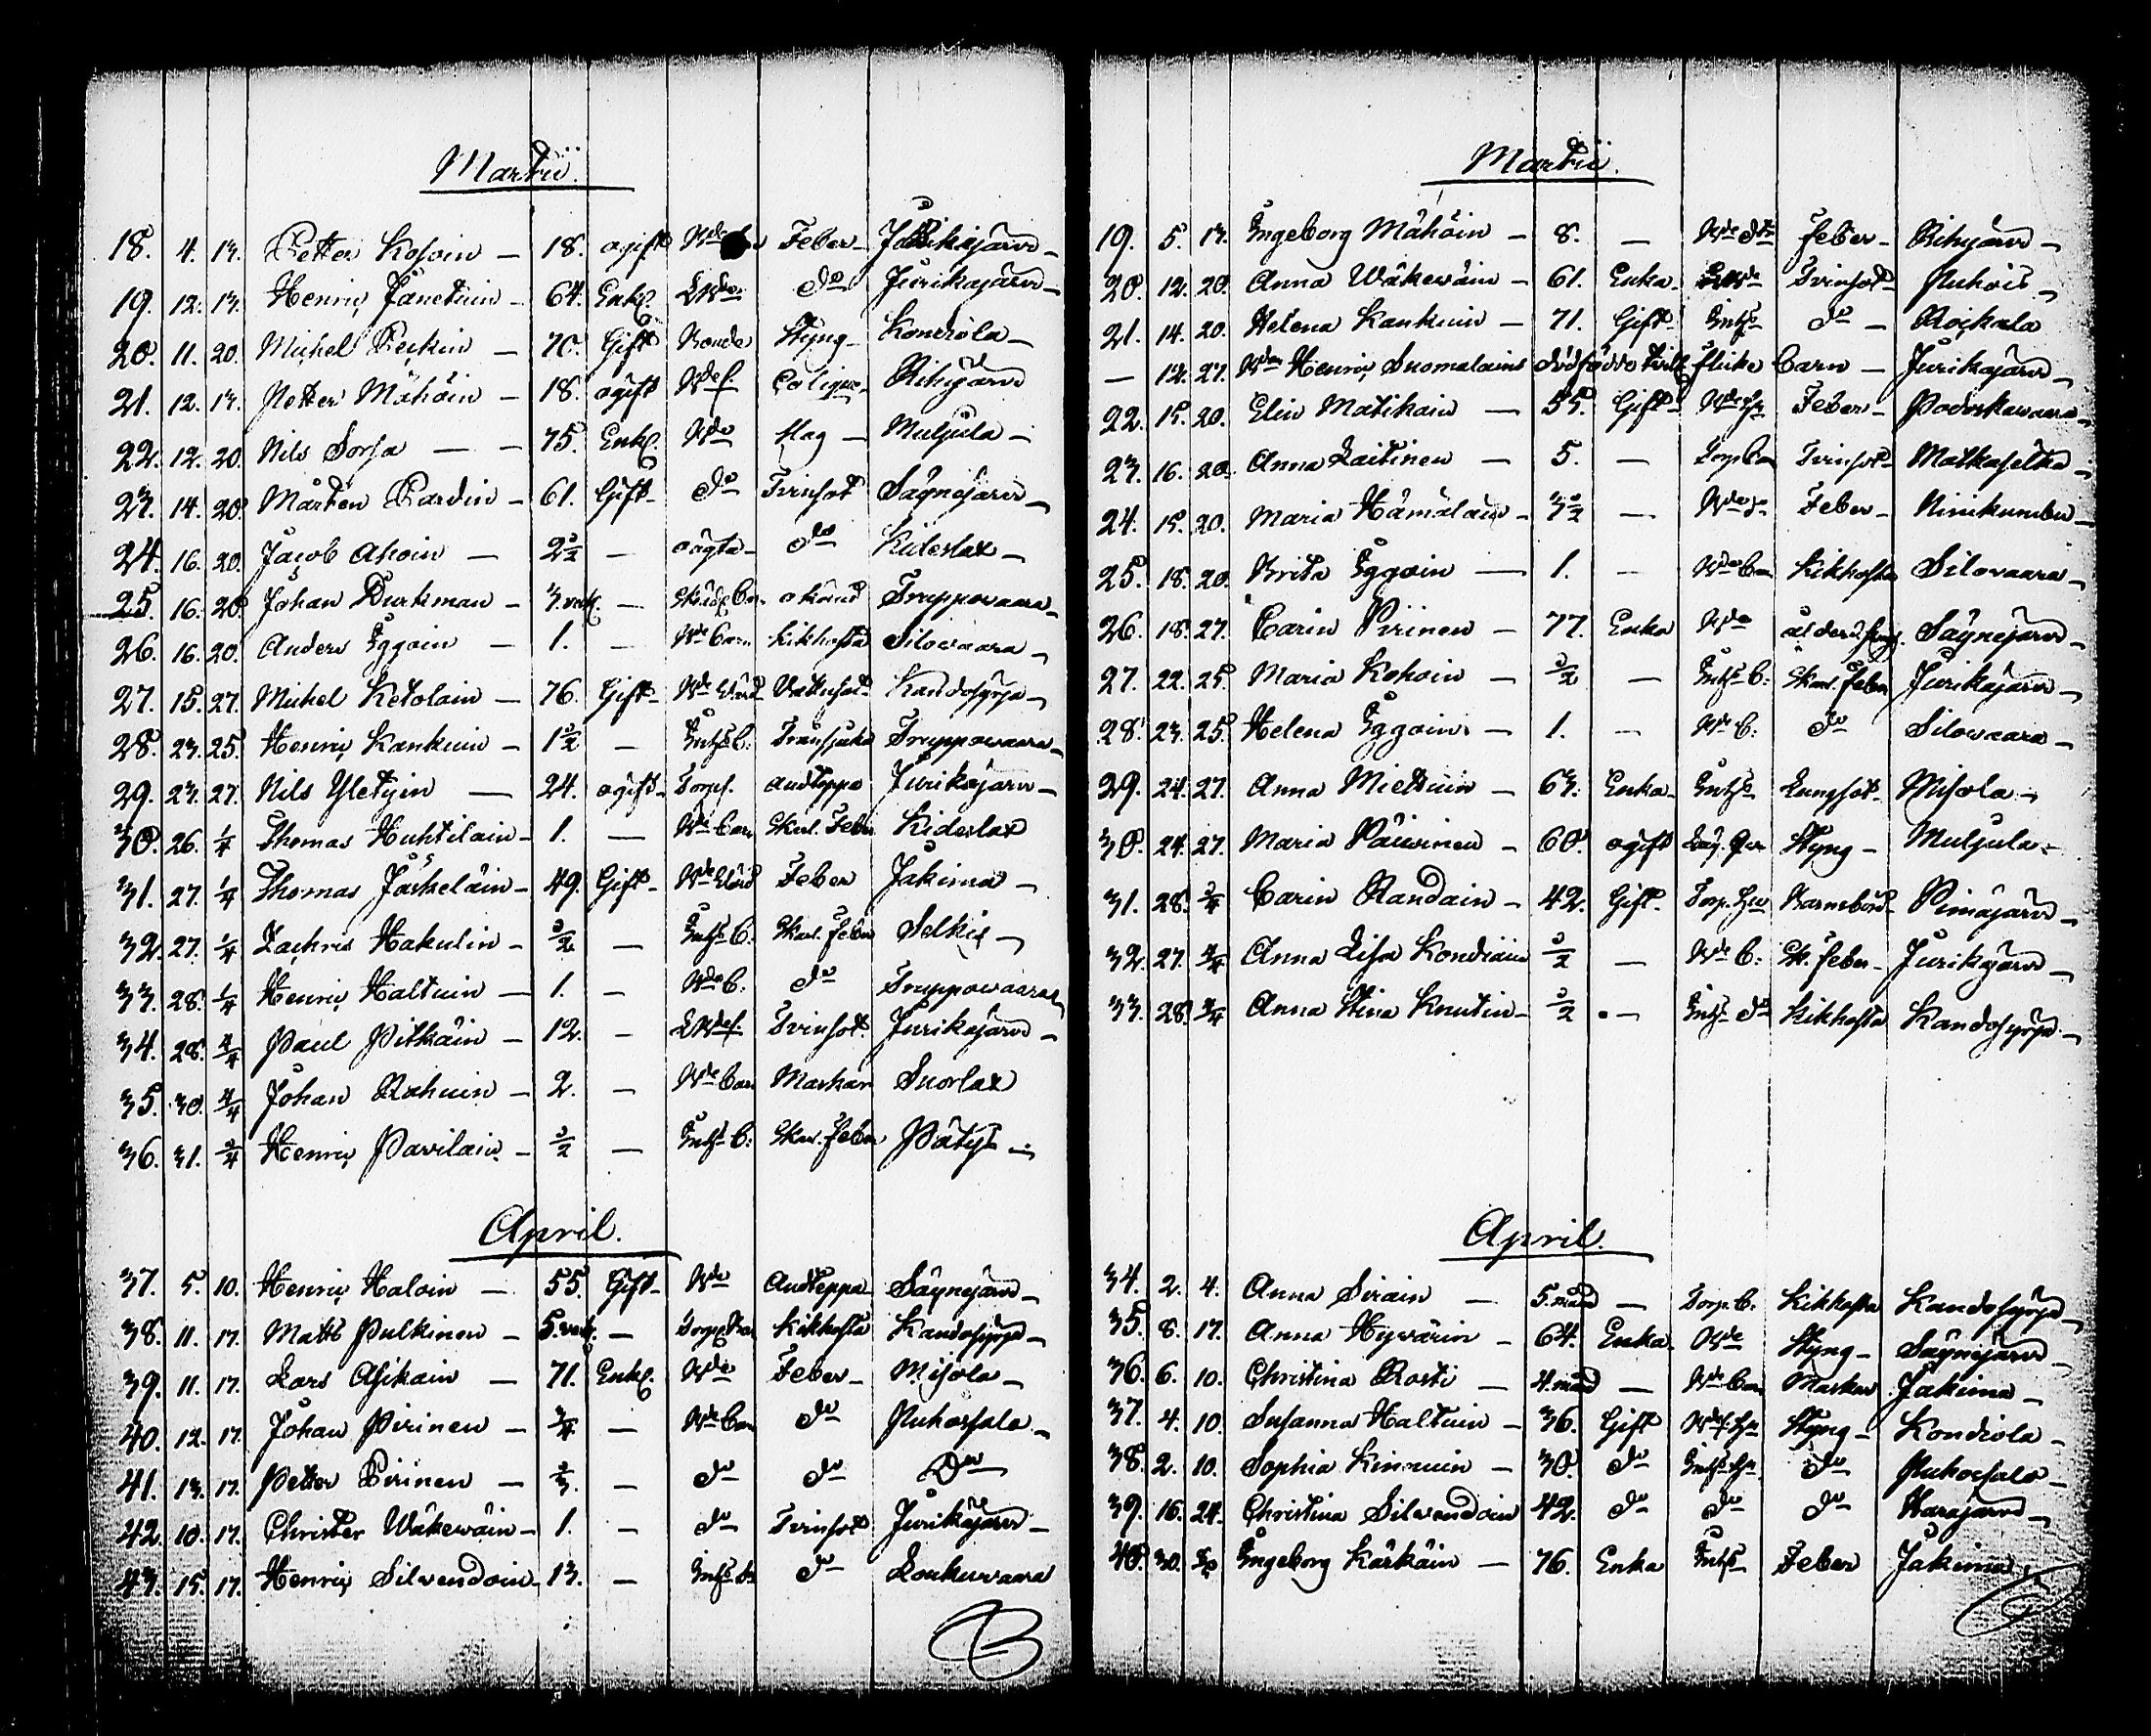 Martii.
18. 4. 13. Petter Kosoin — 18. ogift Feber — Jurikajärvi —
19. 12. 13. Henric Janctuin — 64. Enkl. do Jurikajärvi —
20. 11. 20. Michel Peckin — 70. Gift Bonde Styng — Kondiola —
21. 12. 13. Petter Mähöin — 18. ogift Bdes. Colique — Rihijärvi
22. 12. 20. Nils Sorsa — 75. Enkl. Bde Hag — Muljula —
23. 14. 20. Mårten Pardin — 61. Gift — do Tvinsot Säynejärvi —
24. 16. 20. Jacob Ahoin — 2½ — oägta — do Kideslax —
25. 16. 20. Johan Durkman — 3. veck. — okänd Truppowaara —
26. 16. 20. Anders Iggoin — 1. — Bde Barn Kikhosta Silowaara —
27. 15. 27. Michel Ketolain — 76. Gift — Bde Vattusot Kandosyrjä —
28. 23. 25. Henric Kankuin — 1½ — Inhs B. Transjuka Truppowaara —
29. 23. 27. Nils Yletyin — 24. ogift — Torps. Andteppa Jurikajärvi —
30. 26. 1/4 Thomas Huhtilain — 1. — Bde Barn Skarl. Feber Kideslax
31. 27. 1/4 Thomas Jäskeläin — 49. Gift — Bde Feber Jakima —
32. 27. 1/4 Zachris Hakulin — ½ — Inhs B. Skarl. Feber Selkis —
33. 28. 1/4 Henric Haltuin — 1. — Bde B. do Truppowaara
34. 28. 3/4 Paul Pitkäin — 12. — Tvinsot Jurikajärvi —
35. 30. 3/4 Johan Rahuin — 2. — Bde Barn Maskar Suorlax
36. 31. 3/4 Henric Pavilain — ½ — Inhs B. Skarl. Feber Pätys —
April.
37. 5. 10. Henric Haloin — 55. Gift — Bde Andteppa Säynejärvi —
38. 11. 17. Matts Pulkinen — 5. veck. — Torp. Barn Kikhosta Kandosyrjä —
39. 11. 17. Lars Asikain — 71. Enkl. Bde Feber — Misola —
40. 12. 17. Johan Pirinen — 3/4 — Bde Barn do Puhossalo —
41. 13. 17. Petter Pirinen — 2/3. — do do Do
42. 10. 17. Christer Wäkewäin — 1. — do Tvinsot Jurikajärvi —
43. 15. 17. Henric Silvendoin — 13. — Inhs do Loukuwaara
Martii.
19. 5. 13. Ingeborg Mähöin — 8. — Bde dtr Feber — Rihijärvi —
20. 12. 20. Anna Wäkewäin — 61. Enka — Tvinsot — Puhois —
21. 14. 20. Helena Kankuin — 71. Gift — Inhs do — Roikala
— 12. 27. Bden Henric Suomalains dödfödde tvill. flicke barn — Jurikajärvi —
22. 15. 20. Elin Matikain — 55. Gift — Bde hu Feber — Podoskawaara —
23. 16. 20. Anna Laitinen — 5. — Torp. Barn Tvinsot — Matkaselkä —
24. 15. 20. Maria Hämäläin — 3½ — Feber — Niinikumbu —
25. 18. 20. Brita Iggoin — 1. — Bde Barn Kikhosta Silowaara —
26. 18. 27. Carin Pirinen — 77. Enka Bde Säynejärvi —
27. 22. 25. Maria Kohoin — ½ — Inhs B. Skarl. Feber Jurikajärvi —
28. 23. 25. Helena Iggoin — 1. — Bde B. do Silowaara —
29. 24. 27. Anna Miettuin — 63. Enka — Inhs Lungsot — Misola —
30. 24. 27. Maria Päiwinen — 60. ogift Styng — Muljula —
31. 28. 3/4 Carin Randain — 42. Gift — Torp. hu Barnsbörd — Pimäjärvi —
32. 27. 3/4 Anna Lisa Kondiain ½ — Bde B. Sk. Feber — Jurikajärvi —
33. 28. 3/4 Anna Stina Knutin — ½ — Inhs do Kikhosta Kandosyrjä —
April.
34. 2. 4. Anna Sirain — 5. månd — Torp. B. Kikhosta Kandosyrjä —
35. 8. 17. Anna Hyvärin — 64. Enka. Bde Styng — Säynejärvi —
36. 6. 10. Christina Rosti — 4. månd — Bde Barn Maskar Jakima —
37. 4. 10. Susanna Haltuin — 36. Gift Styng — Kondiola —
38. 2. 10. Sophia Kinnuin — 30. do Inhs hu do Puhossalo —
39. 16. 24. Christina Silvendoin 42. do do do Harajärvi —
40. 30. Ingeborg Kärkäin — 76. Enka Inhs Feber Jakima